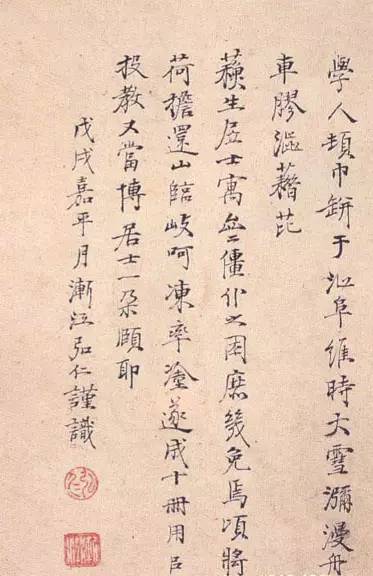 學人頓巾缾于沚阜維時大雪瀰漫舟
車膠澁藉芘
生居士寓僵仆之困庶幾免焉頃將
荷檐還山臨岐呵凍率塗遂成十冊用㠯
投教又當博居士一朵頤耶
戊戌嘉平月漸江弘仁謹識
弘仁